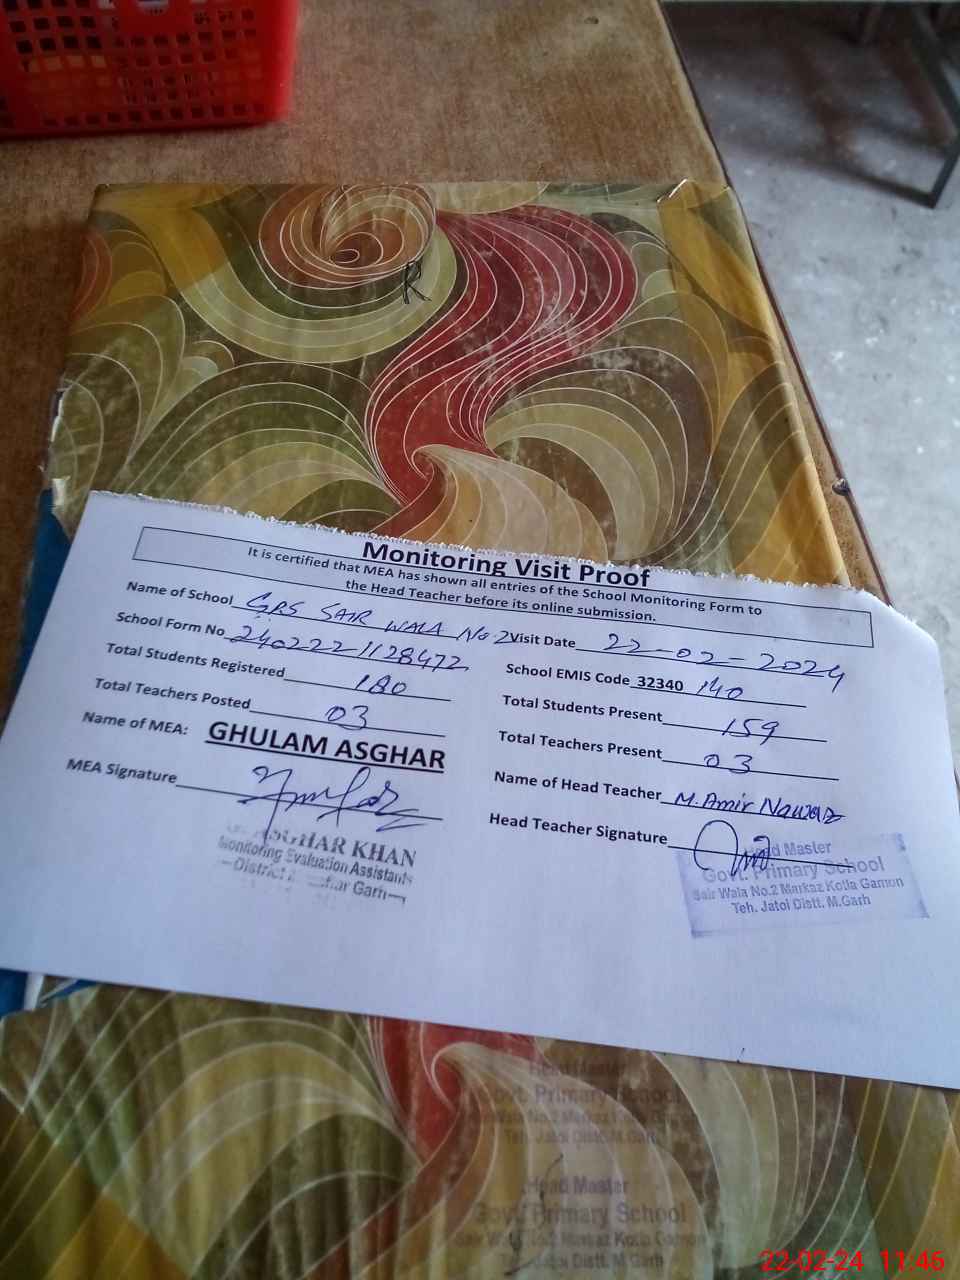 R
Monitoring Visit Proof
It is certified that MEA has shown all entries of the School Monitoring Form to
the Head Teacher before its online submission.
Name of School GPS SAIR WALA No 2 Visit Date 22-02-2024
School Form No 240222 1128472 School EMIS Code 32340 140
Total Students Registered 180 Total Students Present 159
Total Teachers Posted 03 Total Teachers Present 03
Name of MEA: GHULAM ASGHAR Name of Head Teacher M. Amir Nawaz
MEA Signature Head Teacher Signature
ASGHAR KHAN
Monitoring Evaluation Assistants
District Garh
Head Master
Govt. Primary School
Sair Wala No.2 Markaz Kotla Gamon
Teh. Jatoi Distt. M.Garh
Head Master
Govt. Primary School
Wala No.2 Markaz Kotla
Teh. Jatoi Distt. M.Garh
Head Master
Govt. Primary School
Sair Wala No.2 Markaz Kotla Gamon
Teh. Jatoi Distt. M.Garh
22-02-24 11:46